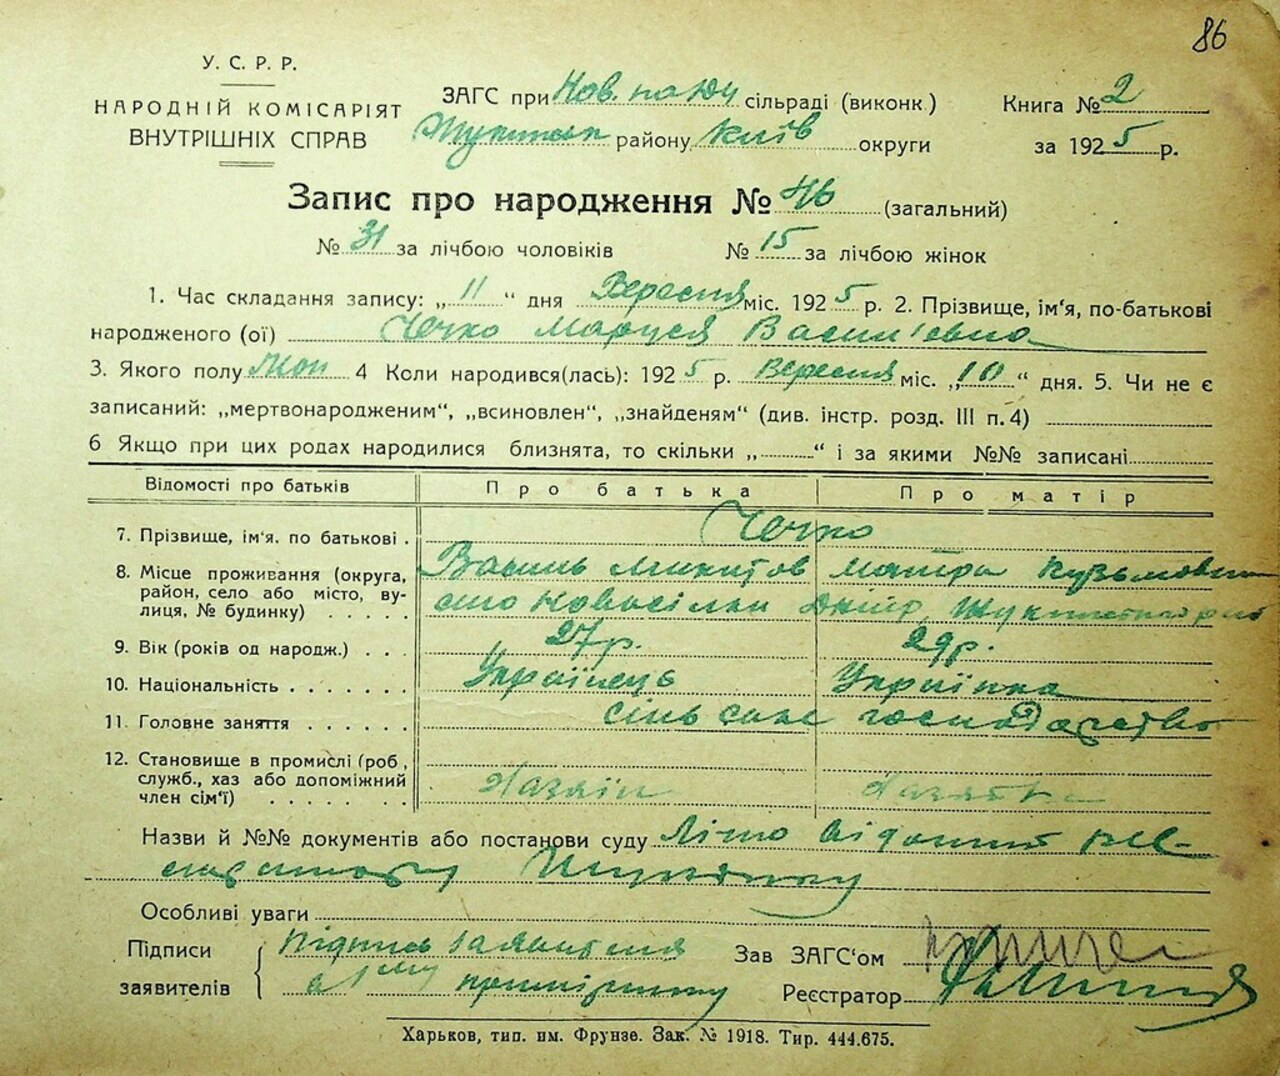 86
У. С. Р. Р.
НАРОДНІЙ КОМІСАРІЯТ
ВНУТРІШНІХ СПРАВ
ЗАГС при Нов. сільраді (виконк.)
району Київ округи
Книга № 2
за 1925 р.
Запис про народження № 46 (загальний)
№ 31 за лічбою чоловіків № 15 за лічбою жінок
1. Час складання запису: „11“ дня Вересня міс. 1925 р. 2. Прізвище, ім'я, по-батькові
народженого (ої) Чечко Маруся Василівна
3. Якого полу Жон 4 Коли народився(лась): 1925 р. Вересня міс. „10“ дня. 5. Чи не є
записаний: „мертвонародженим“, „всиновлен“, „знайденям“ (див. інстр. розд. III п. 4)
6 Якщо при цих родах народилися близнята, то скільки „ “ і за якими №№ записані
Відомості про батьків Про батька Про матір
7. Прізвище, ім'я. по батькові . Чечко
Василь Микитов Мотря Кузьмовна
8. Місце проживання (округа,
район, село або місто, ву-
лиця, № будинку) . . . . .
село Новосілки Дніпр,
9. Вік (років од народж.) . . . 27 р. 29 р.
10. Національність . . . . . . . Українець Українка
11. Головне заняття . . . . . . сільське господарство
12. Становище в промислі (роб,
служб., хаз або допоміжний
член сім'ї) . . . . . . . Хазяїн Хазяйка
Назви й №№ документів або постанови суду Лічно відомий
Особливі уваги
Підписи
заявителів
Підпись заявителя
в 1му примірнику
Зав ЗАГС'ом
Реєстратор
Харьков, тип. им. Фрунзе. Зак. № 1918. Тир. 444.675.